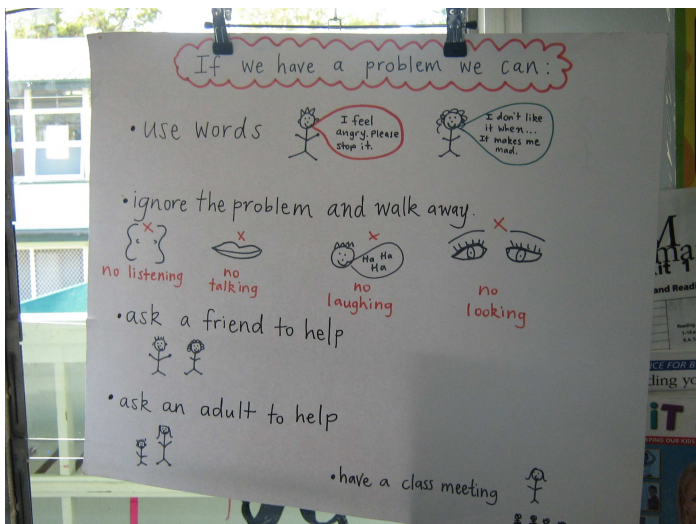 If we have a problem we can:
• use words
I feel
angry. Please
stop it.
I don't like
it when...
It makes me
mad.
• ignore the problem and walk away.
x x x x
no listening
no
talking
Ha Ha
Ha
no
laughing
no
looking
• ask a friend to help
• ask an adult to help
• have a class meeting
M
and Readi
ding yo
iT